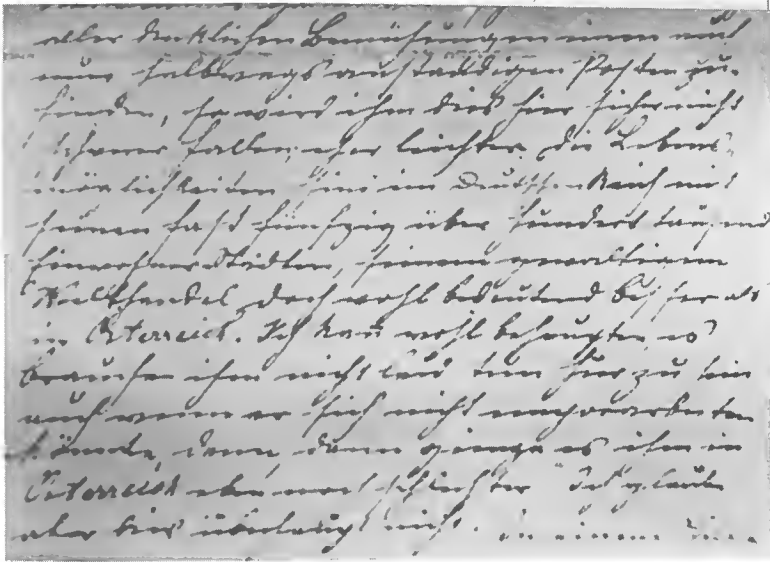 aller denklichen Bemühungen einen auch
nur halbwegs anständigen Posten zu
finden, so wird ihm dies hier sicher nicht
schwer fallen, eher leichter. Die Lebens-
möglichkeiten sind im Deutschen Reich mit
seinen fast fünfzig über hundert tausend
Einwohner Städten, seinem gewaltigen
Welthandel doch wohl bedeutend besser als
in Österreich. Ich kann wohl behaupten es
brauche ihm nicht leid tun hier zu sein
auch wenn er sich nicht emporarbeiten
könnte, denn dann ginge es ihm in
Österreich eben noch schlechter. Ich glaube
aber dies überhaupt nicht. In einem